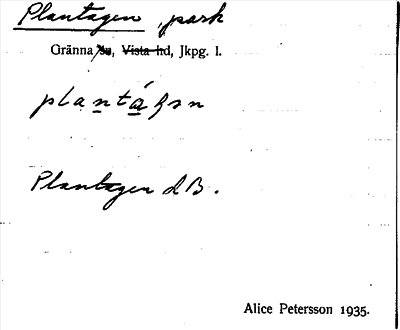 Plantagen, park
Gränna sn, Vista hd, Jkpg. l.
plantágən
Plantagen dB.
Alice Petersson 1935.